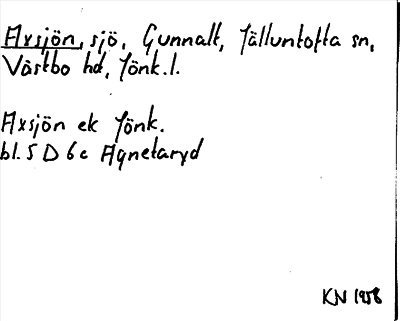 Axsjön, sjö, Gunnalt, Jälluntofta sn,
Västbo hd, Jönk. l.
Axsjön ek Jönk.
bl. 5 D 6 c Agnetaryd
KN 1958